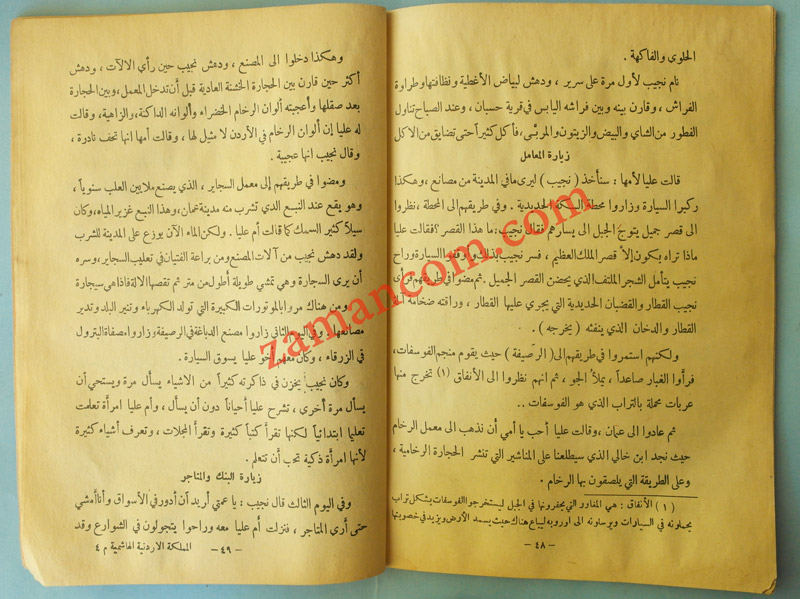 الحلوى والفاكهة .
نام نجيب لأول مرة على سرير ، ودهش لبياض الأغطية ونظافتها وطراوة
الفراش ، وقارن بينه وبين فراشه اليابس في قرية حسبان ، وعند الصباح تناول
الفطور من الشاي والبيض والزيتون والمربى ، فأكل كثيراً حتى تضايق من الاكل
زيارة المعامل
قالت عليا لأمها : سنأخذ ( نجيب ) ليرى ما في المدينة من مصانع ، وهكذا
ركبوا السيارة وزاروا محطة السكة الحديدية . وفي طريقهم الى المحطة ، نظروا
الى قصر جميل يتوج الجبل الى يسارهم فقال نجيب : ما هذا القصر ؟ فقالت عليا
ماذا تراه يكون إلا قصر الملك العظيم ، فسر نجيب بذلك وأوقفوا السيارة وراح
نجيب يتأمل الشجر الملتف الذي يحضن القصر الجميل . ثم مضوا في طريقهم فرأى
نجيب القطار والقضبان الحديدية التي يجري عليها القطار ، ورافته ضخامة
القطار والدخان الذي ينفثه ( يخرجه ) .
ولكنهم استمروا في طريقهم الى ( الرصيفة ) حيث يقوم منجم الفوسفات ،
فرأوا الغبار صاعداً ، يملأ الجو ، ثم انهم نظروا الى الأنفاق (١) تخرج منها
عربات محملة بالتراب الذي هو الفوسفات ..
ثم عادوا الى عمان ، وقالت عليا أحب يا أمي أن نذهب الى معمل الرخام
حيث نجد ابن خالي الذي سيطلعنا على المناشير التي تنشر الحجارة الرخامية ،
وعلى الطريقة التي يلصقون بها الرخام .
( ١ ) الأنفاق : هي المغاور التي يحفرونها في الجبل ليستخرجوا الفوسفات بشكل تراب
يحملونه في السيارات ويرسلونه الى اوروبه ليباع هناك حيث يسمد الأرض ويزيد في خصوبتها
- ٤٨ -
وهكذا دخلوا الى المصنع ، ودهش نجيب حين رأى الالات ، ودهش
أكثر حين قارن بين الحجارة الخشنة العادية قبل أن تدخل المعمل ، وبين الحجارة
بعد صقلها وأعجبته ألوان الرخام الخضراء وألوانه الداكنة ، والزاهية ، وقالت
له عليا إن ألوان الرخام في الأردن لا مثيل لها ، وقالت أمها انها تحف نادرة ،
وقال نجيب انها عجيبة .
ومضوا في طريقهم إلى معمل السجاير ، الذي يصنع ملايين العلب سنوياً ،
وهو يقع عند النبع الذي تشرب منه مدينة عمان ، وهذا النبع غزير المياه ، وكان
سيلاً كثير السمك كما قالت أم عليا . ولكن الماء الآن يوزع على المدينة للشرب
ولقد دهش نجيب من آلات المصنع ومن براعة الفتيان في تعليب السجاير ، وسره
أن يرى السجارة وهي تمشي طويلة أطول من متر ثم تقصها الالة فاذا هي سيجارة
ومن هناك مروا بالموتورات الكبيرة التي تولد الكهرباء وتنير البلد وتدير
مصانعها . وفي اليوم الثاني زاروا مصنع الدباغة في الرصيفة وزاروا مصفاة البترول
في الزرقاء ، وكان معهم أخو عليا يسوق السيارة .
وكان نجيب يخزن في ذاكرته كثيراً من الاشياء يسأل مرة ويستحي أن
يسأل مرة أخرى ، تشرح عليا أحياناً دون أن يسأل ، وأم عليا امرأة تعلمت
تعليما ابتدائياً لكنها تقرأ كتباً كثيرة وتقرأ المجلات ، وتعرف أشياء كثيرة
لأنها امرأة ذكية تحب أن تتعلم .
زيارة البنك والمتاجر
وفي اليوم الثالث قال نجيب : يا عمتي أريد أن أدور في الأسواق وانا أمشي
حتى أرى المتاجر ، فنزلت أم عليا معه وراحوا يتجولون في الشوارع وقد
- ٤٩ - المملكة الاردنية الهاشمية م ٤
zamancom.com